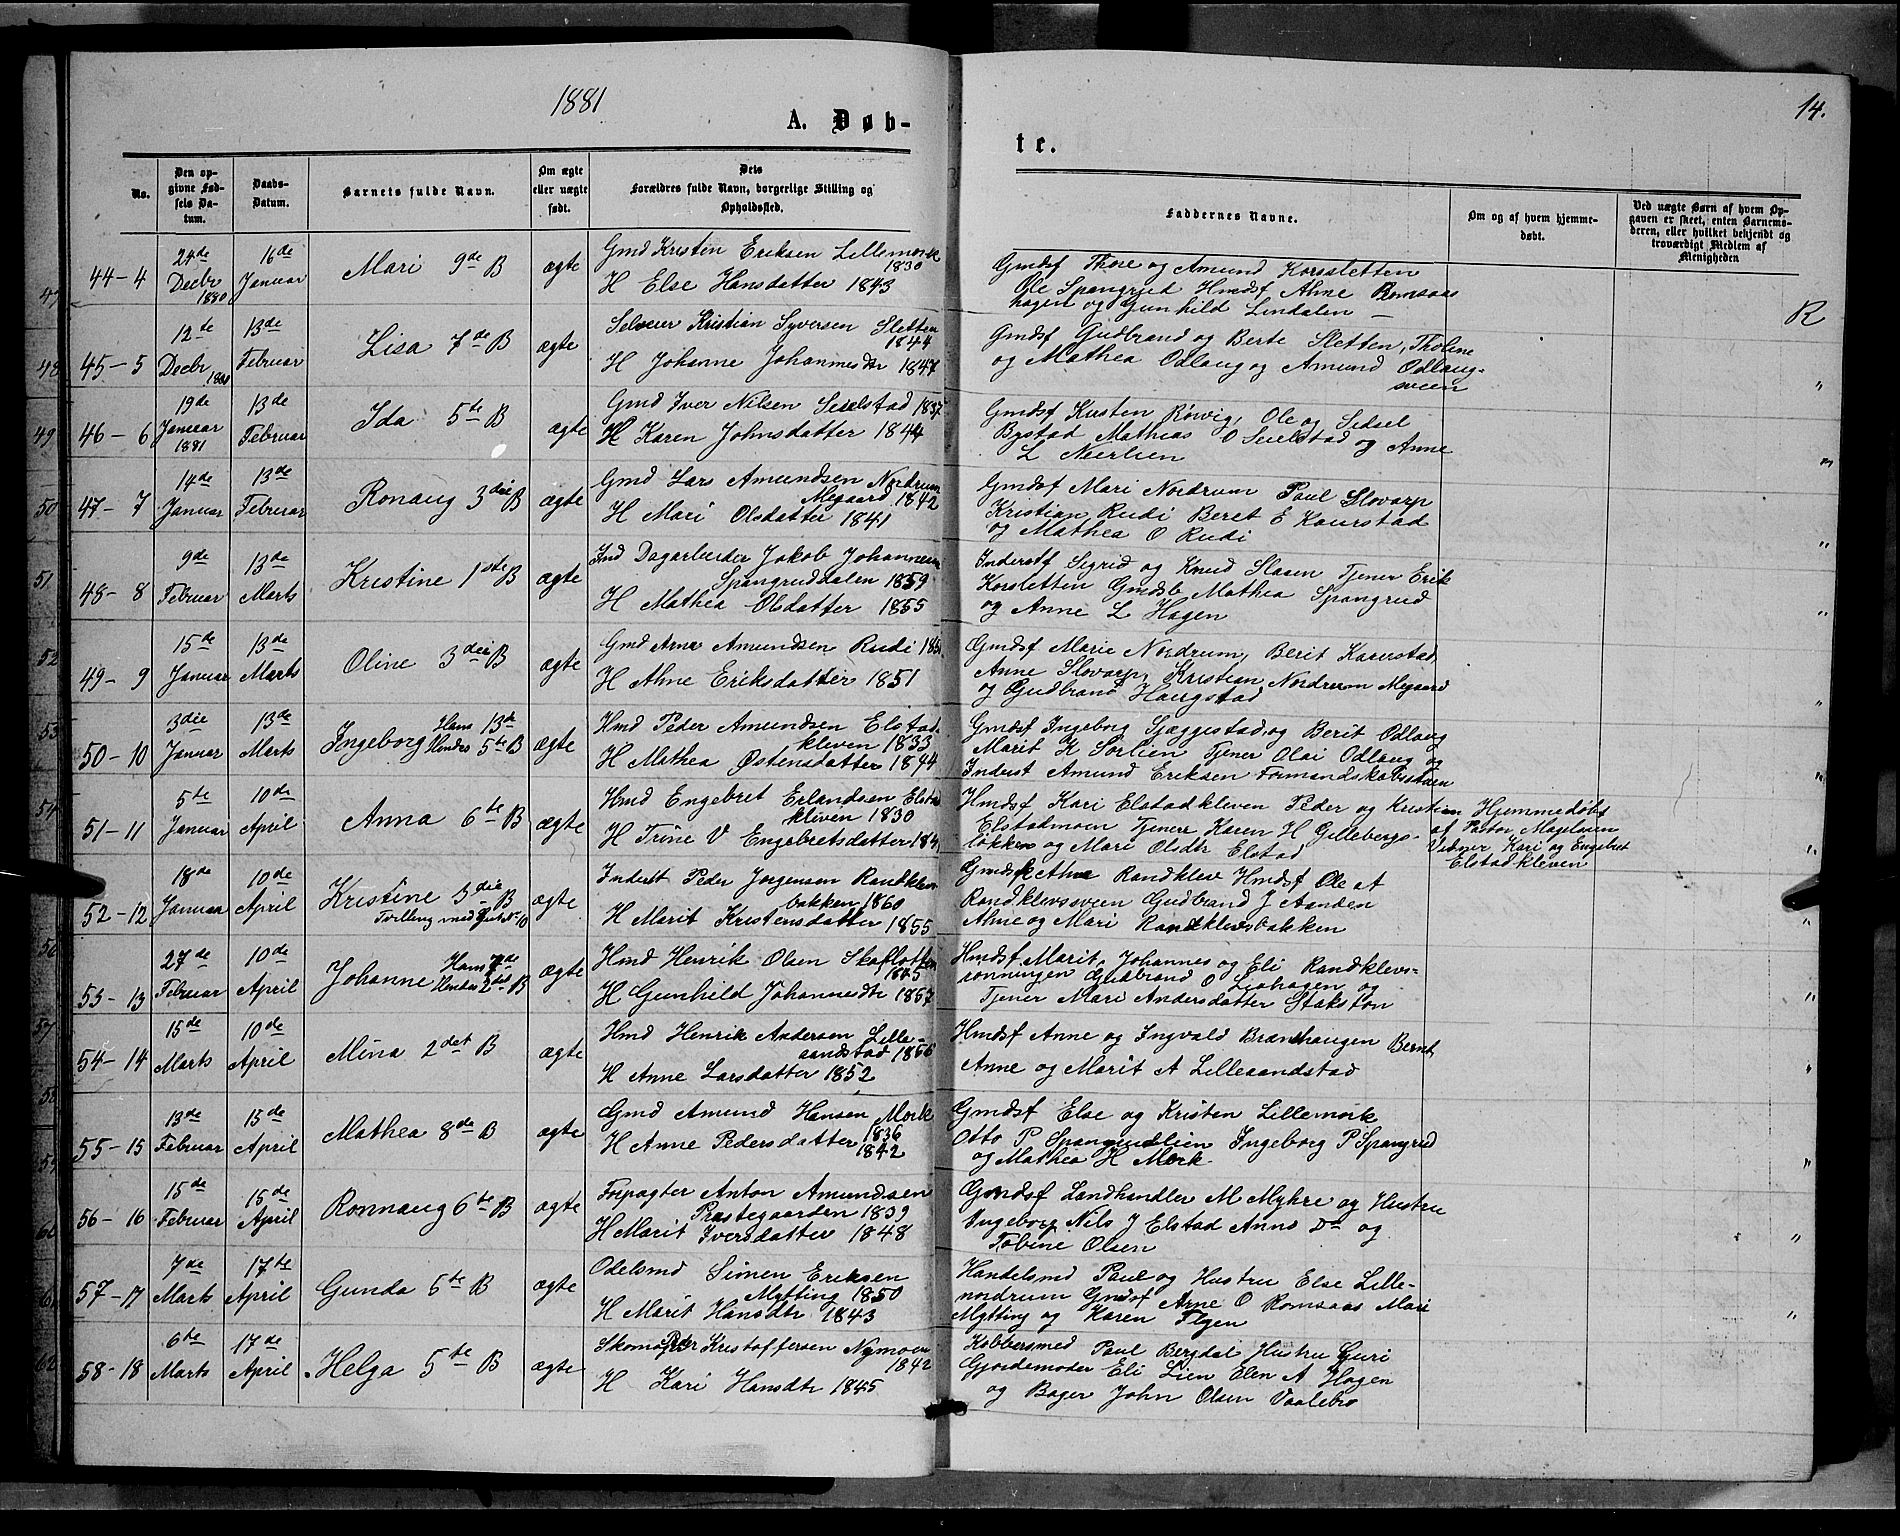 1881
14.
A. Døb-
te.
No.
Den op-
givne Fød-
sels Da-
tum.
Daabs-
Datum.
Barnets fulde Navn.
Om ægte
eller uægte
født.
Dets
Forældres fulde Navn, borgerlige Stilling og
Opholdssted.
Faddernes Navne.
Om og af hvem hjemme-
døbt.
Ved uægte Børn af hvem Op-
gaven er skeet, enten Barnemo-
deren, eller hvilket bekjendt og
troværdigt Medlem af
Menigheden
44-4 24de Decbr 1880 16de Januar Mari 9de B ægte
Gmd Kristen Eriksen Lillemork
1830
H Else Hansdatter 1843
Gmdsf Thore og Amund Korssletten
Ole Spangrud Hmdsf Ahne Romsaas
hagen og Gunhild Lindalen —
R
45-5 12te Decbr 1880 13de Februar Lisa 7de B ægte
Selveier Kristian Syversen Sletten
1844
H Johanne Johannesdtr 1847
Gmdsf Gudbrand og Berte Sletten, Tholine
og Mathea Odlaug og Amund Odlaug-
sveen
"
46-6 19de Januar 1881 13de Februar Ida 5te B ægte
Gmd Iver Nilsen Seielstad 1837
H Karen Johnsdatter 1844
Gmdsf Kristen Rørvig, Ole og Sidsel
Bystad Mathias O Seielstad og Anne
L
"
47-7 14de Januar 13de Februar Ronaug 3die B ægte
Gmd Lars Amundsen Nordrum
Megaard 1842
H Mari Olsdatter 1841
Gmdsf Mari Nordrum Paul Slovarp
Kristian Rudi Beret E Kaurstad
og Mathea O Rudi
"
48-8 9de Februar 13de Marts Kristine 1ste B ægte
Ind Dagarbeider Jakob Johannesen
Spangruddalen 1859
H Mathea Olsdatter 1855
Inderstf Sigrid og Knud Slaaen Tjener Erik
Korsletten Gmdsb Mathea Spangrud
og Anne L Hagen
"
49-9 15de Januar 13de Marts Oline 3die B ægte
Gmd Arne Amundsen Rudi
H Ahne Eriksdatter 1851
Gmdsf Marie Nordrum, Berit Karustad,
Anne Slovarp, Kristian Nordrum Megaard
og Gudbrand Haugstad
"
50-10 3die Januar 13de Marts Ingeborg Hans 13de Hendes 5te B ægte
Hmd Peder Amundsen Elstad-
kleven 1833
H Mathea Østensdatter 1844
Gmdsf Ingeborg Sjaggestad og Berit Odlaug
Marit K Sørlien Tjener Olai Odlaug og
Inderst Amund Eriksen Formandskabsstuen
"
51-11 5te Januar 10de April Anna 6te B ægte
Hmd Engebret Erlandsen Elstad
kleven 1830
H Trine V Engebretsdatter
Hmdsf Kari Elstadkleven Peder og Kristian
Elstadmoen Tjenere Karen H Gillebergs-
løkken og Mari Olsdtr Elstad
Hjemmedøbt
af Pastor Magelssen
Vidner, Kari og Engebret
Elstadkleven
"
52-12 18de Januar 10de April Kristine 3die B ægte
Tvilling med
Inderst Peder Jørgensen Randklev
bakken 1860
H Marit Kristensdatter 1855
Gmdsk Ahne Randklev Hmdsf Ole at
Randklevsveen Gudbrand J Aanden
Ahne og Mari Randklevsbakken
53-13 27de Februar 10de April Johanne Hans 7de Hendes 2det B ægte
Hmd Henrik Olsen Skaflotten
1845
H Gunhild Johannesdtr 1857
Hmdsf Marit, Johannes og Eli Randklevs-
rønningen Gudbrand O Liahagen og
Tjener Mari Andersdatter Stakston
"
54-14 15de Marts 10de April Mina 2det B ægte
Hmd Henrik Andersen Lille-
aandstad 1856
H Anne Larsdatter 1852
Hmdsf Anne og Ingvald Brændhaugen Bernt,
Anne og Marit A Lilleaandstad
"
55-15 13de Februar 15de April Mathea 8de B ægte
Gmd Amund Hansen Mork
1836
H Anne Pedersdatter 1842
Gmdsf Else og Kristen Lillemork
Otto P Spangrudlien Ingeborg P Spangrud
og Mathea H Mork
"
56-16 15de Februar 15de April Ronnaug 6te B ægte
Forpagter Anton Amundsen
Præstegaarden 1839
H Marit Iversdatter 1848
Gmdsf Landhandler M Myhre og Hustru
Ingeborg Nils J Elstad Anne Do og
Tobine Olsen
"
57-17 7de Marts 17te April Gunda 5te B ægte
Odelsmd Simen Eriksen
Mytting 1850
H Marit Hansdtr 1843
Handelsmd Paul og Hustru Else Lille-
nordrum Gmdsf Arne O Romsaas Mari
Mytting og Karen Flyen
"
58-18 6te Marts 17de April Helga 5te B ægte
Skomager Kristoffersen Nymoen
1842
H Kari Hansdtr 1845
Kobbersmed Paul Bergdal Hustru Guri
Gjordemoder Eli Lien Elen A Hagen
og Bager John Olsen Vaalebro